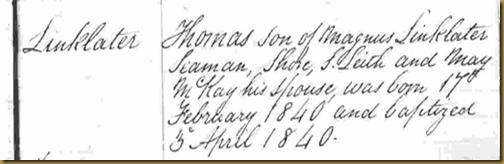 Linklater
Thomas son of Magnus Linklater
Seaman, Shore, S. Leith and May
McKay his spouse, was born 17th
February 1840 and baptized
3d April 1840.